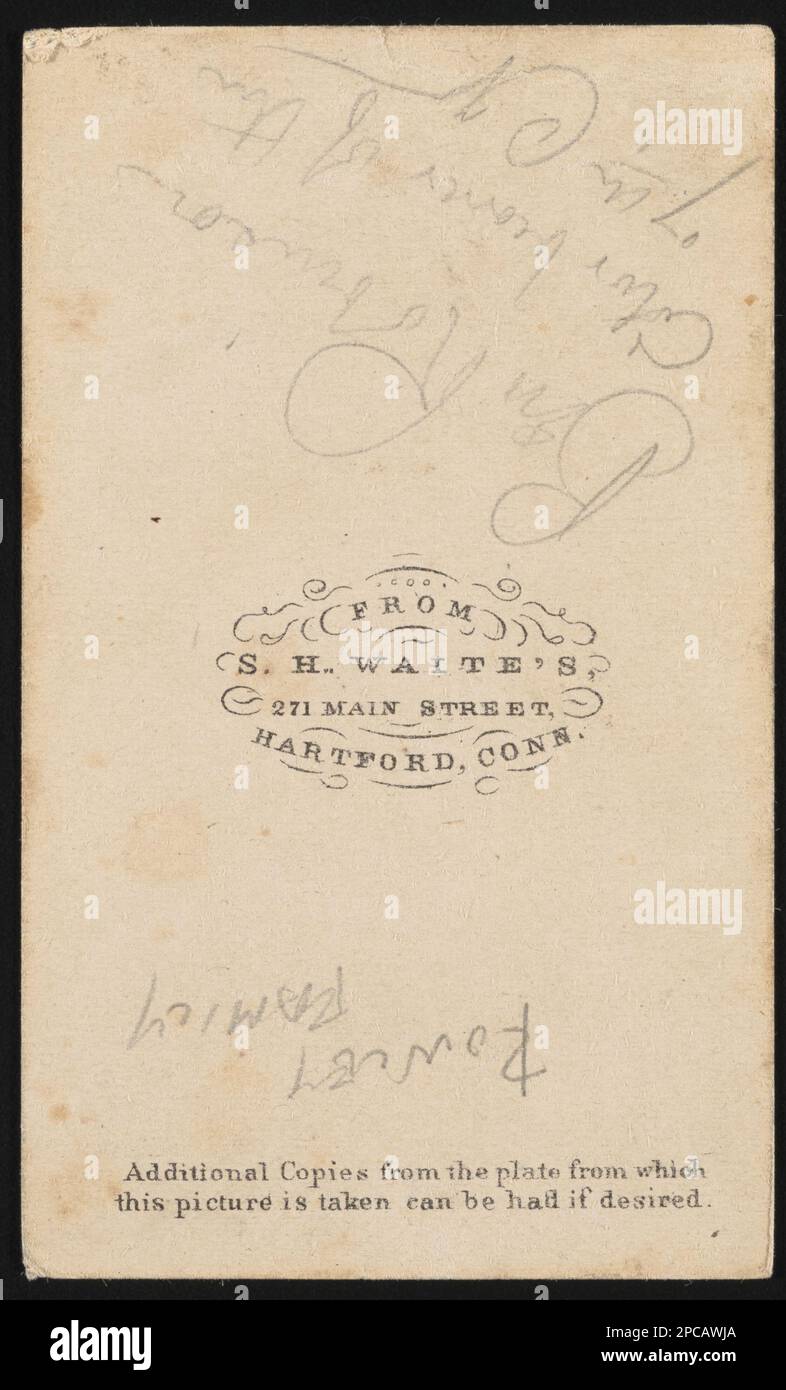 Ben
Robinson
Color bearer of the
7th Cy
FROM
S. H. WAITE'S,
271 MAIN STREET,
HARTFORD, CONN.
ROWLEY
FAMILY
Additional Copies from the plate from which
this picture is taken can be had if desired.
alamy
alamy
alamy
Image ID: 2PCAWJA
www.alamy.com